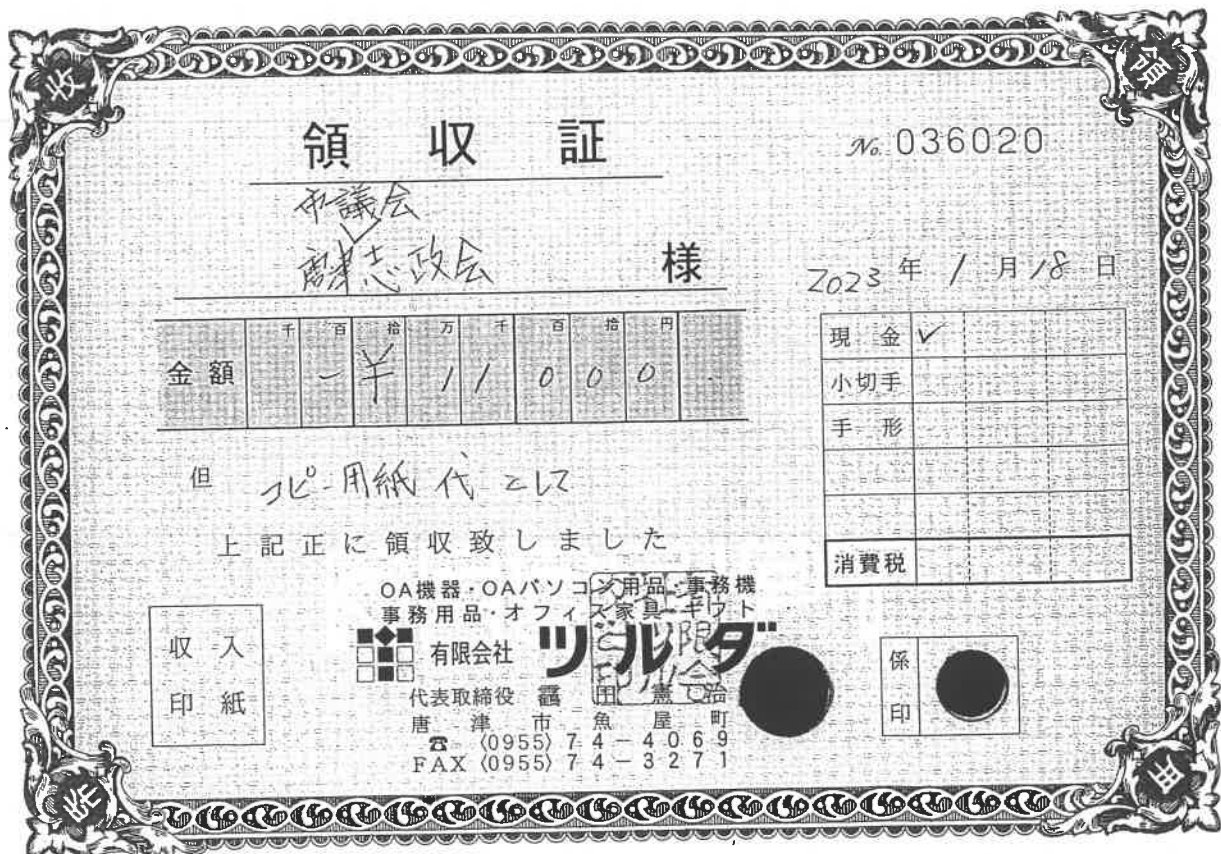 収
領
領収証
No. 036020
市議会
志政会 様
2023年1月18日
千 百 拾 万 千 百 拾 円
金額 -¥11000
現金 ✓
小切手
手形
消費税
但 コピー用紙代として
上記正に領収致しました
OA機器・OAパソコン用品・事務機
事務用品・オフィス家具・ギフト
有限会社 ツルダ
代表取締役 田憲治
唐津市魚屋町
☎ (0955) 74-4069
FAX (0955) 74-3271
収入
印紙
係
印